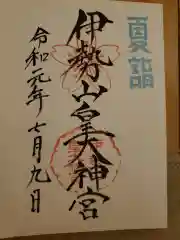 夏詣
伊勢山皇大神宮
令和元年七月九日